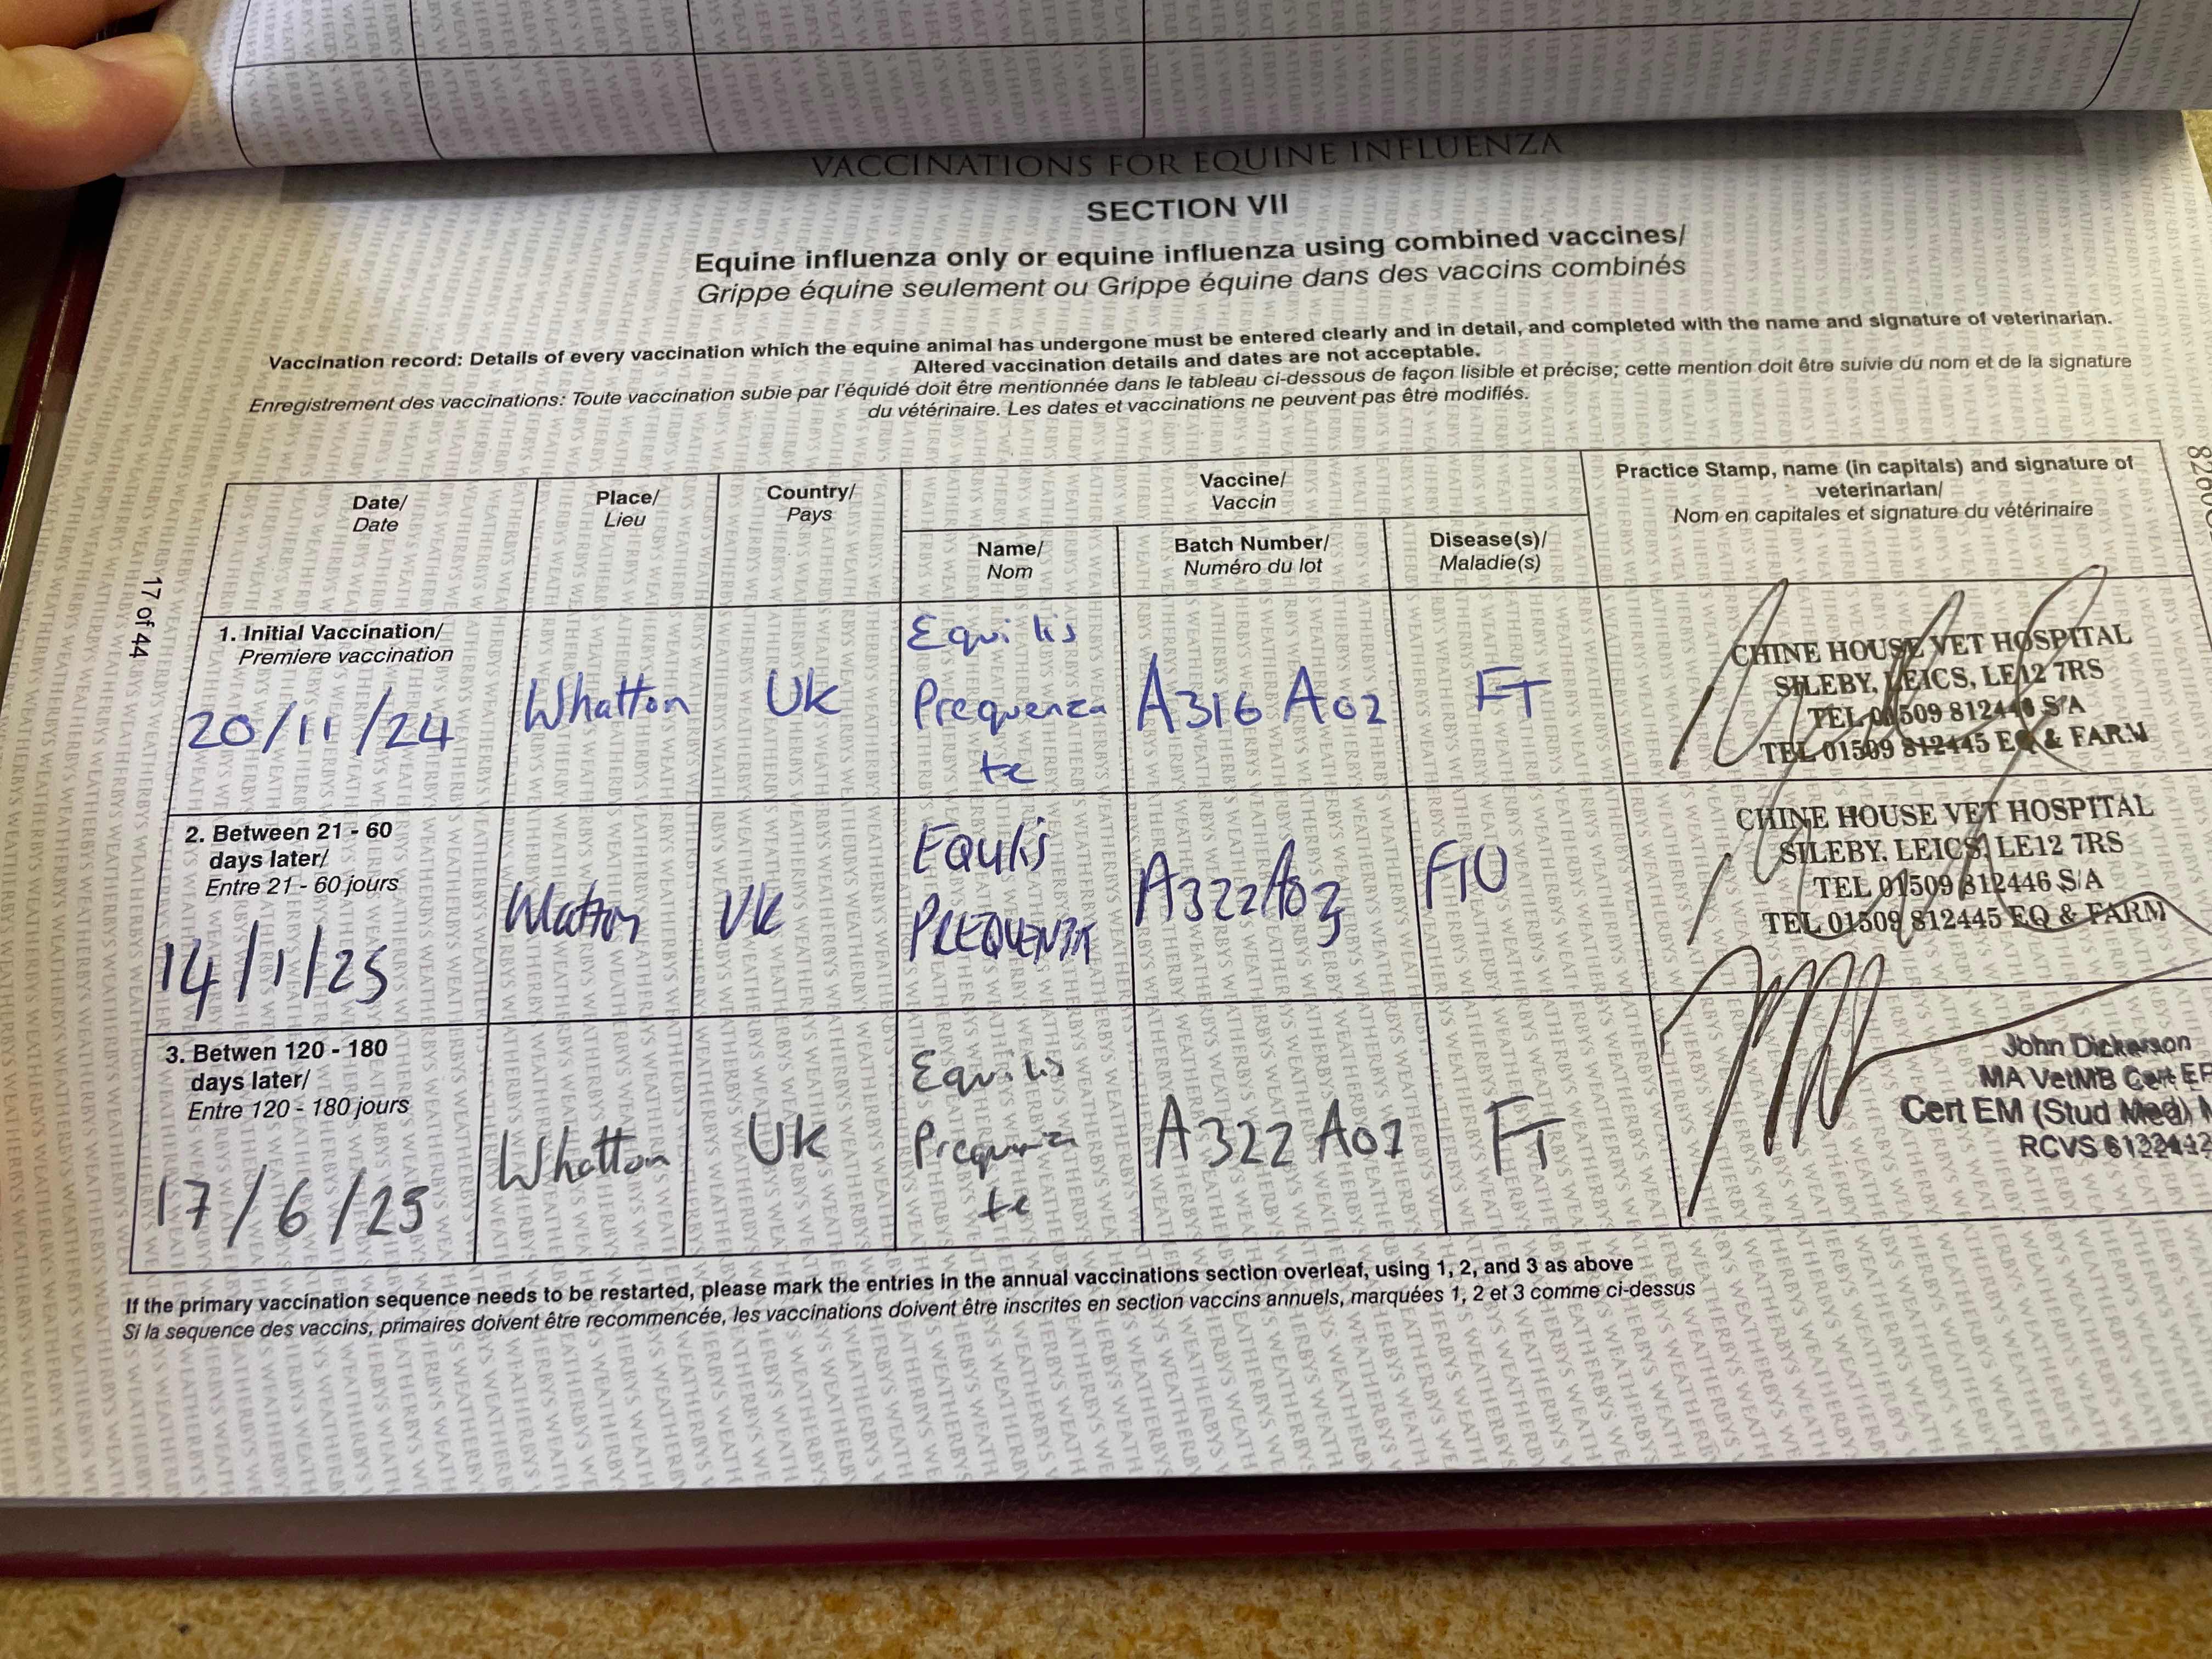 VACCINATIONS FOR EQUINE INFLUENZA
SECTION VII
Equine influenza only or equine influenza using combined vaccines/
Grippe équine seulement ou Grippe équine dans des vaccins combinés
Vaccination record: Details of every vaccination which the equine animal has undergone must be entered clearly and in detail, and completed with the name and signature of veterinarian.
Altered vaccination details and dates are not acceptable.
Enregistrement des vaccinations: Toute vaccination subie par l'équidé doit être mentionnée dans le tableau ci-dessous de façon lisible et précise; cette mention doit être suivie du nom et de la signature
du vétérinaire. Les dates et vaccinations ne peuvent pas être modifiés.
Date/
Date
Place/
Lieu
Country/
Pays
Vaccine/
Vaccin
Name/
Nom
Batch Number/
Numéro du lot
Disease(s)/
Maladie(s)
Practice Stamp, name (in capitals) and signature of
veterinarian/
Nom en capitales et signature du vétérinaire
1. Initial Vaccination/
Premiere vaccination
20/11/24
Whatton
UK
Equilis
Prequenza
te
A316 A02
FT
CHINE HOUSE VET HOSPITAL
SILEBY, LEICS, LE12 7RS
TEL 01509 812446 S/A
TEL 01509 812445 EQ & FARM
2. Between 21 - 60
days later/
Entre 21 - 60 jours
14/1/25
UK
PREQUENZA
A322A03
CHINE HOUSE VET HOSPITAL
SILEBY. LEICS, LE12 7RS
TEL 01509 812446 S/A
TEL 01509 812445 EQ & FARM
3. Betwen 120 - 180
days later/
Entre 120 - 180 jours
17/6/25
Whatton
UK
Equilis
te
A322
FT
John Dickerson
MA VetMB Cert
Cert EM (Stud Med)
RCVS
17 of 44
If the primary vaccination sequence needs to be restarted, please mark the entries in the annual vaccinations section overleaf, using 1, 2, and 3 as above
Si la sequence des vaccins, primaires doivent être recommencée, les vaccinations doivent être inscrites en section vaccins annuels, marquées 1, 2 et 3 comme ci-dessus
WEATHERBYS